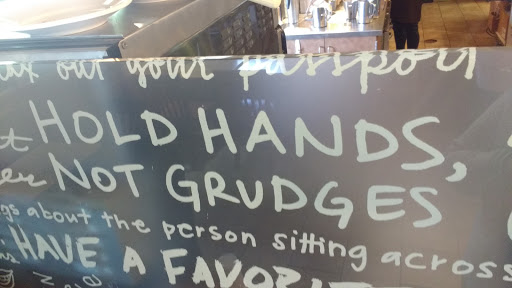 out your passport
HOLD HANDS,
NOT GRUDGES
about the person sitting across
HAVE A